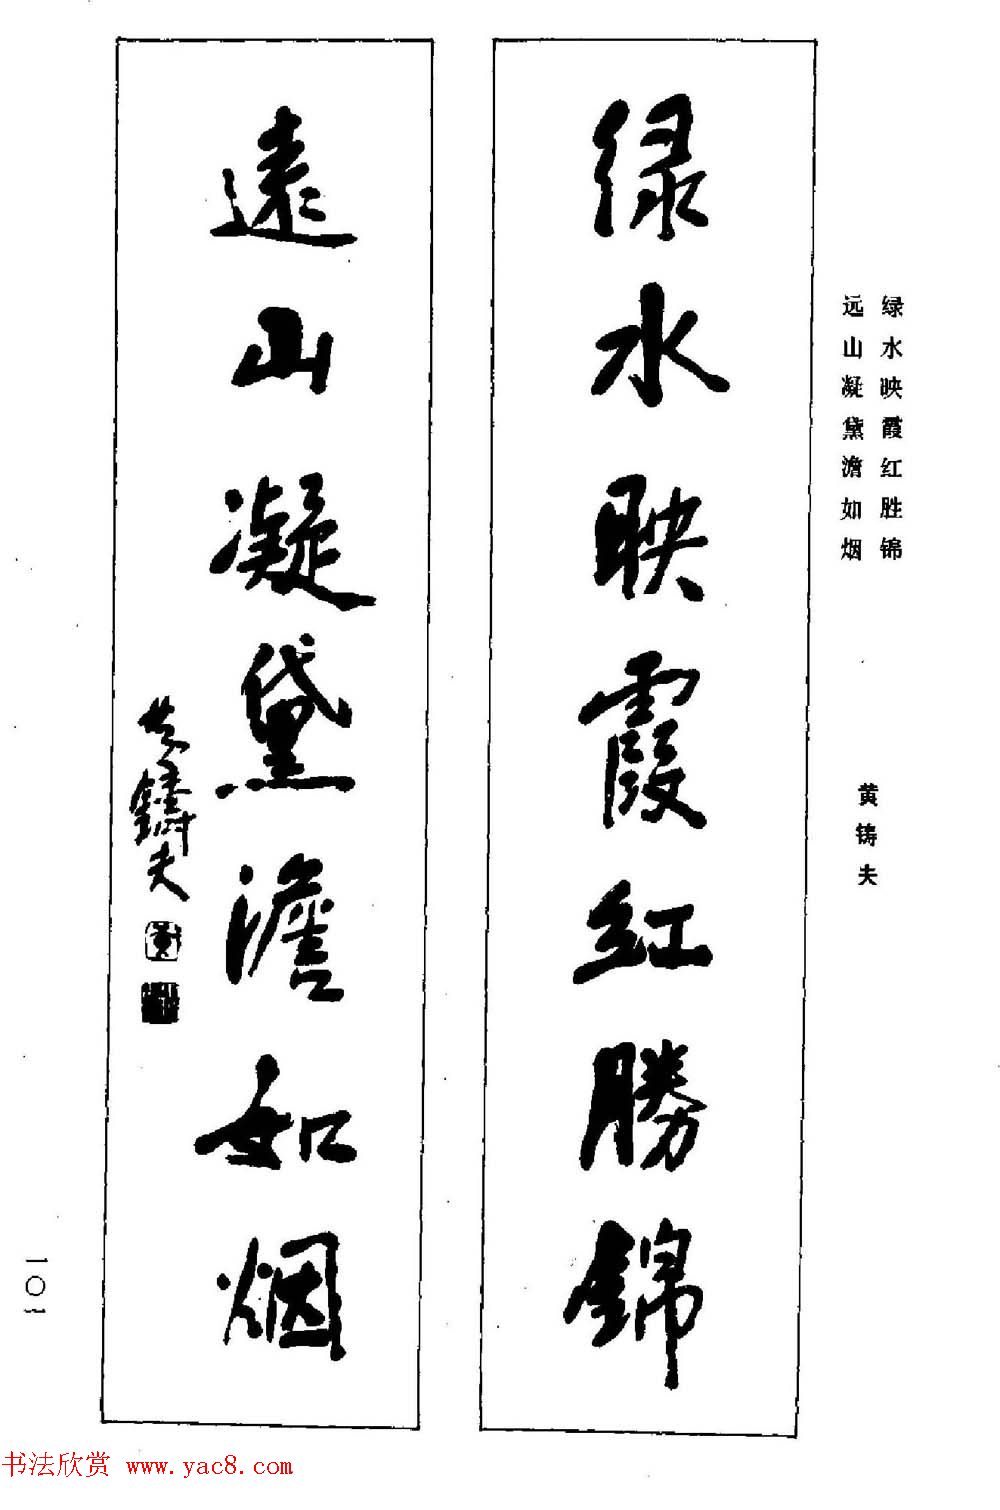 绿水映霞红胜锦
远山凝黛澹如烟
黄铸夫
绿水映霞红勝錦
遠山凝黛澹如烟
黄鑄夫
黄
101
书法欣赏 www.yac8.com